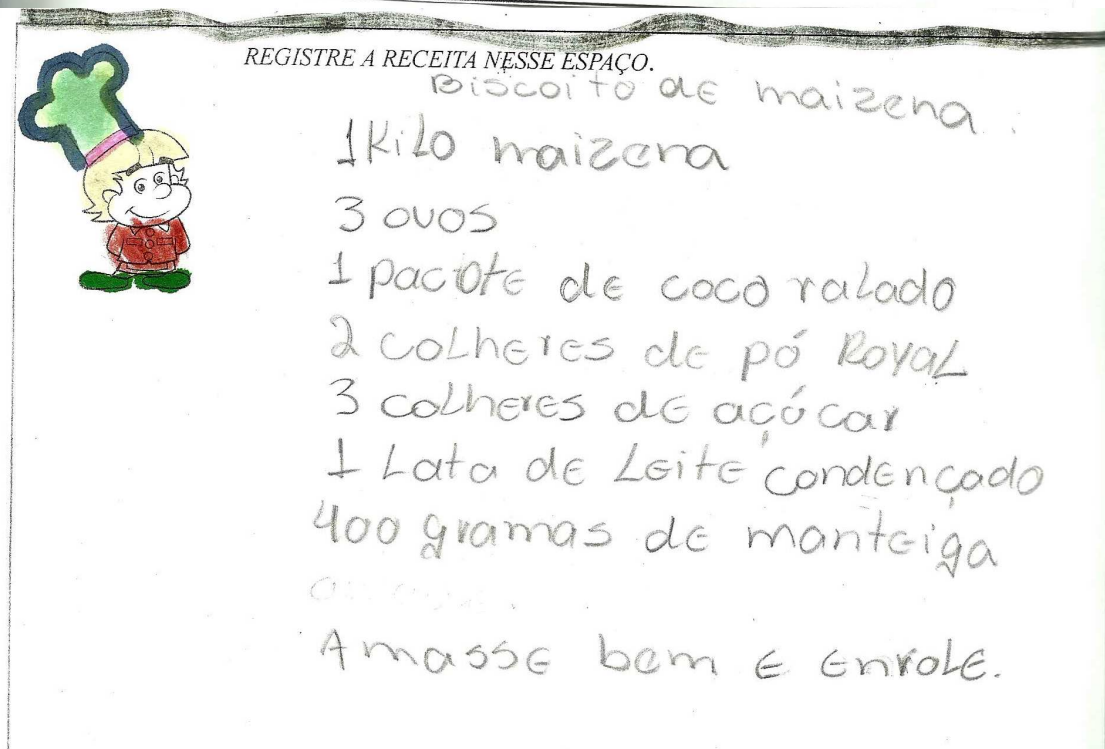 REGISTRE A RECEITA NESSE ESPAÇO.
Biscoito de maizena.
1 Kilo maizena
3 ovos
1 pacote de coco ralado
2 colheres de pó Royal
3 colheres de açócar
1 Lata de Leite condençado
400 gramas de manteiga
Amasse bem e enrole.